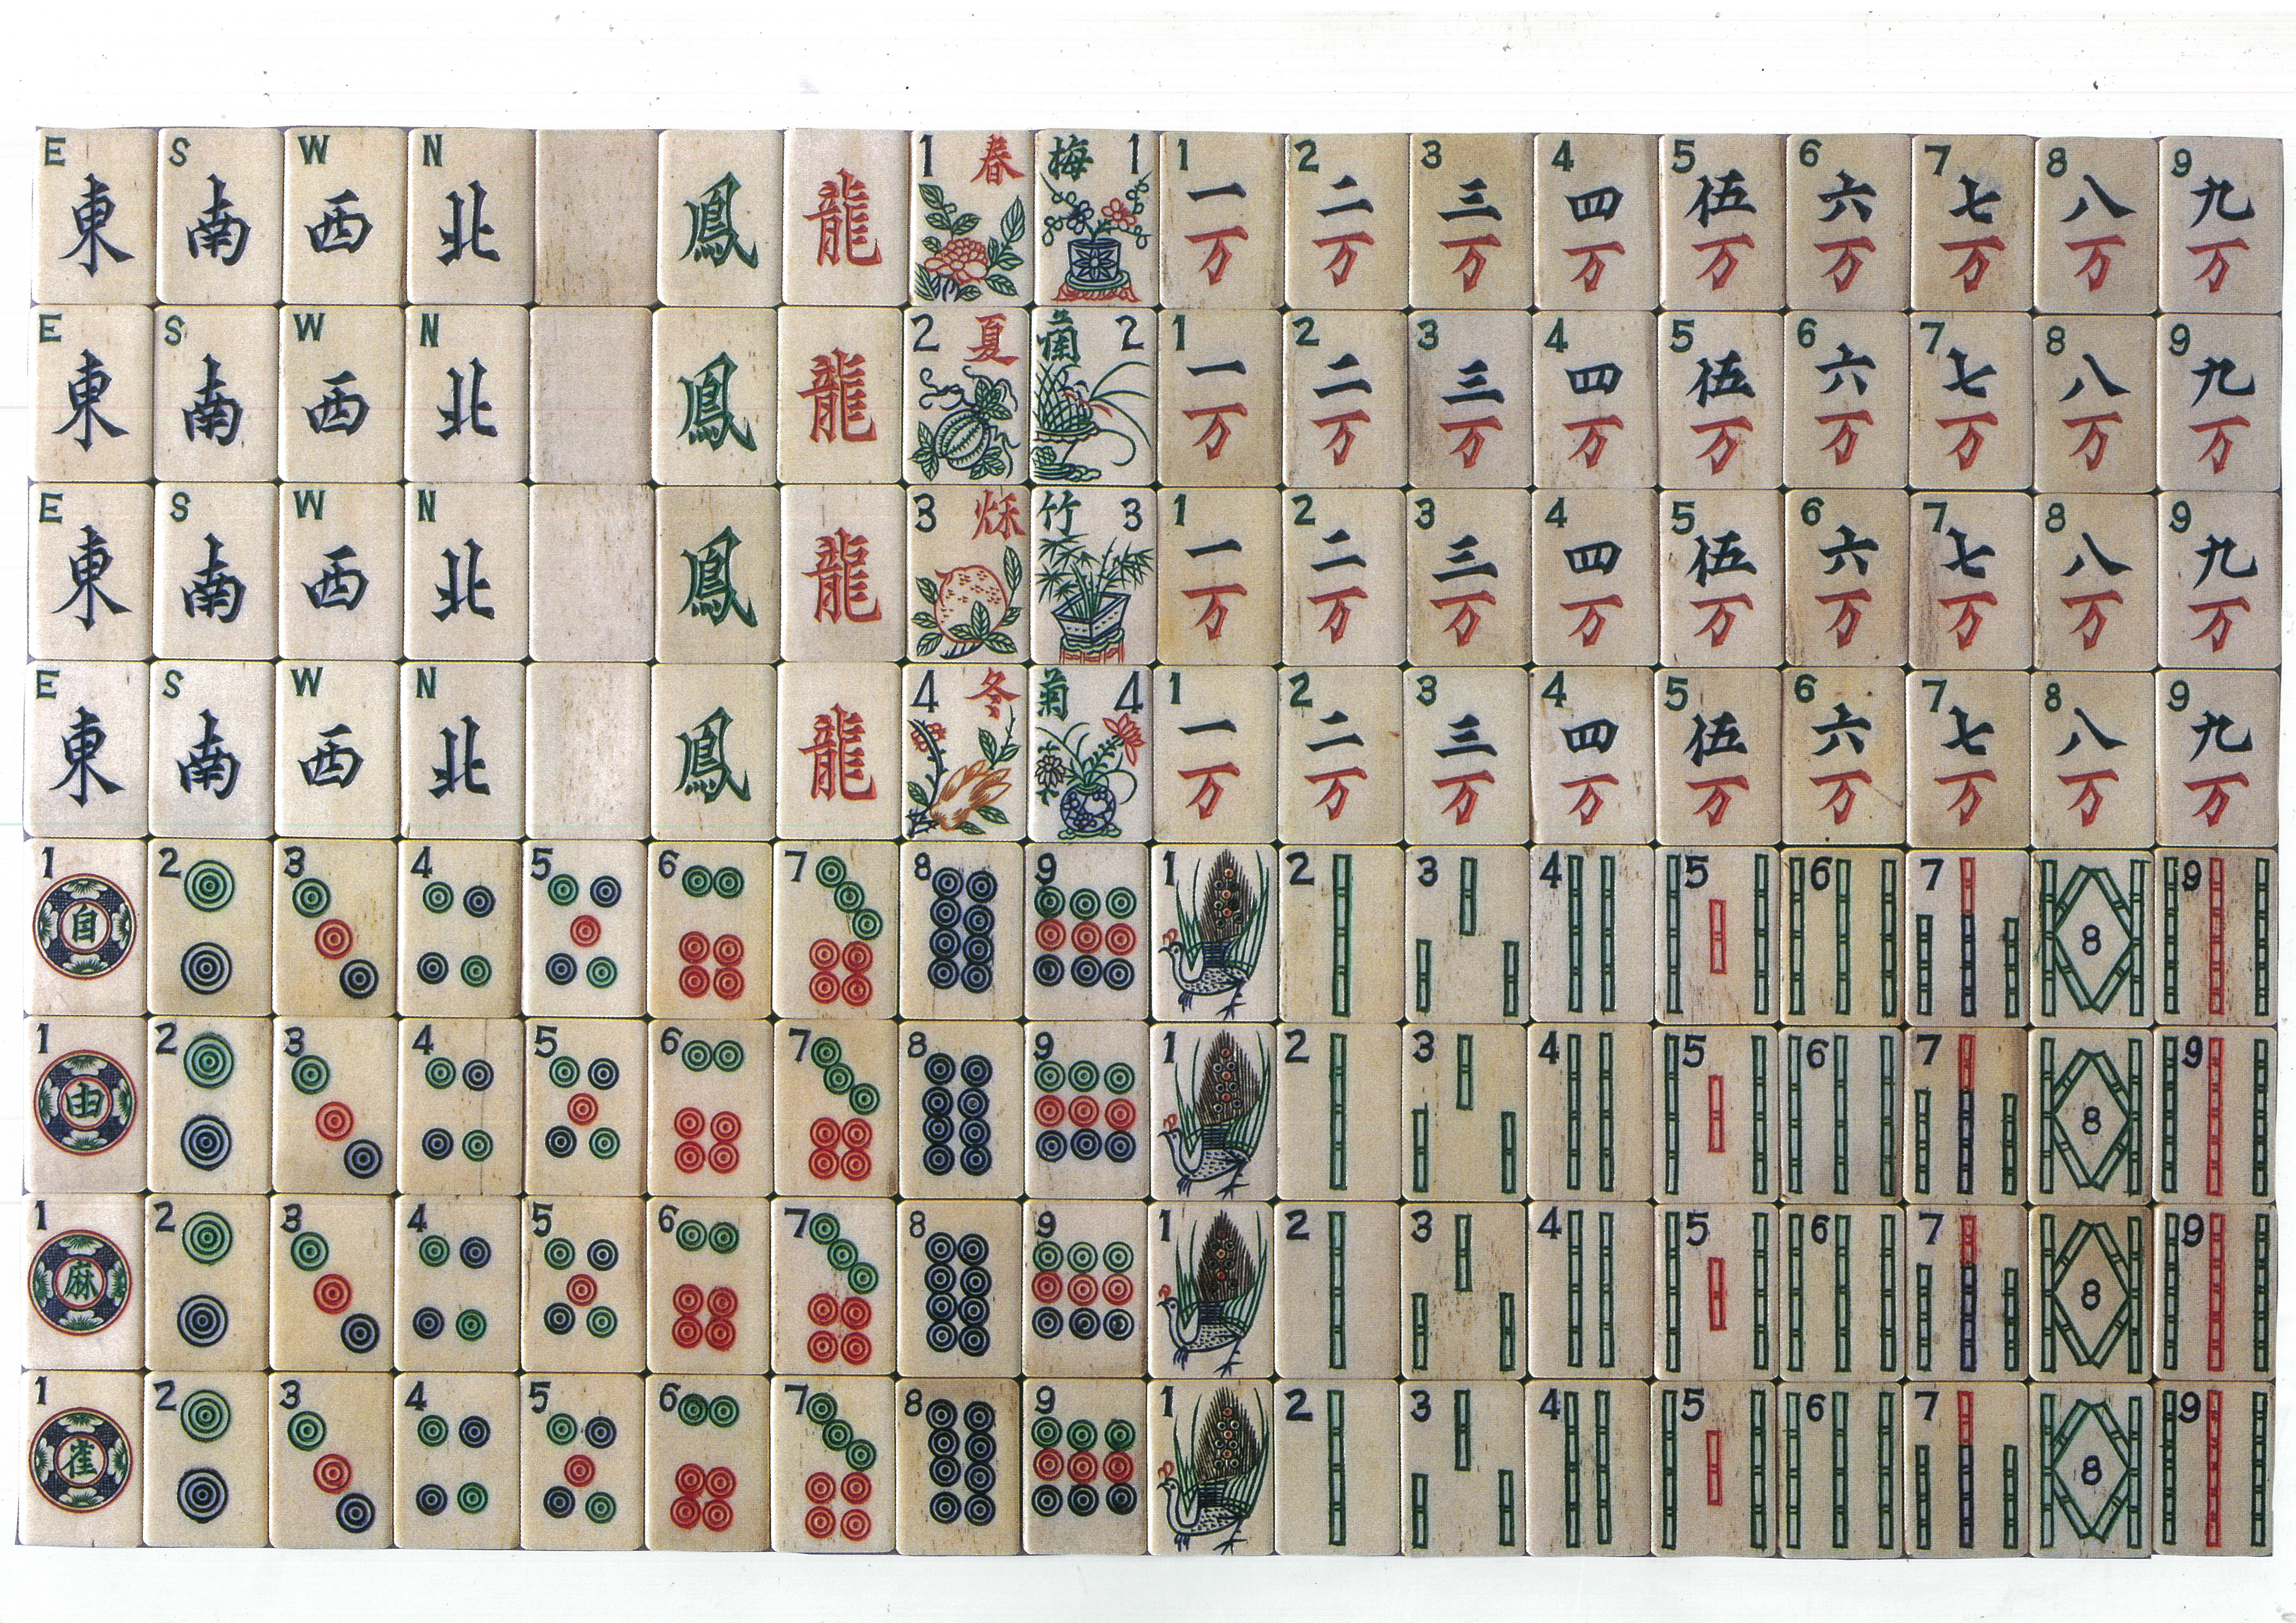 E S W N 1 春 梅 1 1 2 3 4 5 6 7 8 9
東 南 西 北 鳳 龍 一 二 三 四 伍 六 七 八 九
万 万 万 万 万 万 万 万 万
E S W N 2 夏 蘭 2 1 2 3 4 5 6 7 8 9
東 南 西 北 鳳 龍 一 二 三 四 伍 六 七 八 九
万 万 万 万 万 万 万 万 万
E S W N 3 秌 竹 3 1 2 3 4 5 6 7 8 9
東 南 西 北 鳳 龍 一 二 三 四 伍 六 七 八 九
万 万 万 万 万 万 万 万 万
E S W N 4 冬 菊 4 1 2 3 4 5 6 7 8 9
東 南 西 北 鳳 龍 一 二 三 四 伍 六 七 八 九
万 万 万 万 万 万 万 万 万
1 2 3 4 5 6 7 8 9 1 2 3 4 5 6 7 9
自 8
1 2 3 4 5 6 7 8 9 1 2 3 4 5 6 7 9
由 8
1 2 3 4 5 6 7 8 9 1 2 3 4 5 6 7 9
麻 8
1 2 3 4 5 6 7 8 9 1 2 3 4 5 6 7 9
雀 8